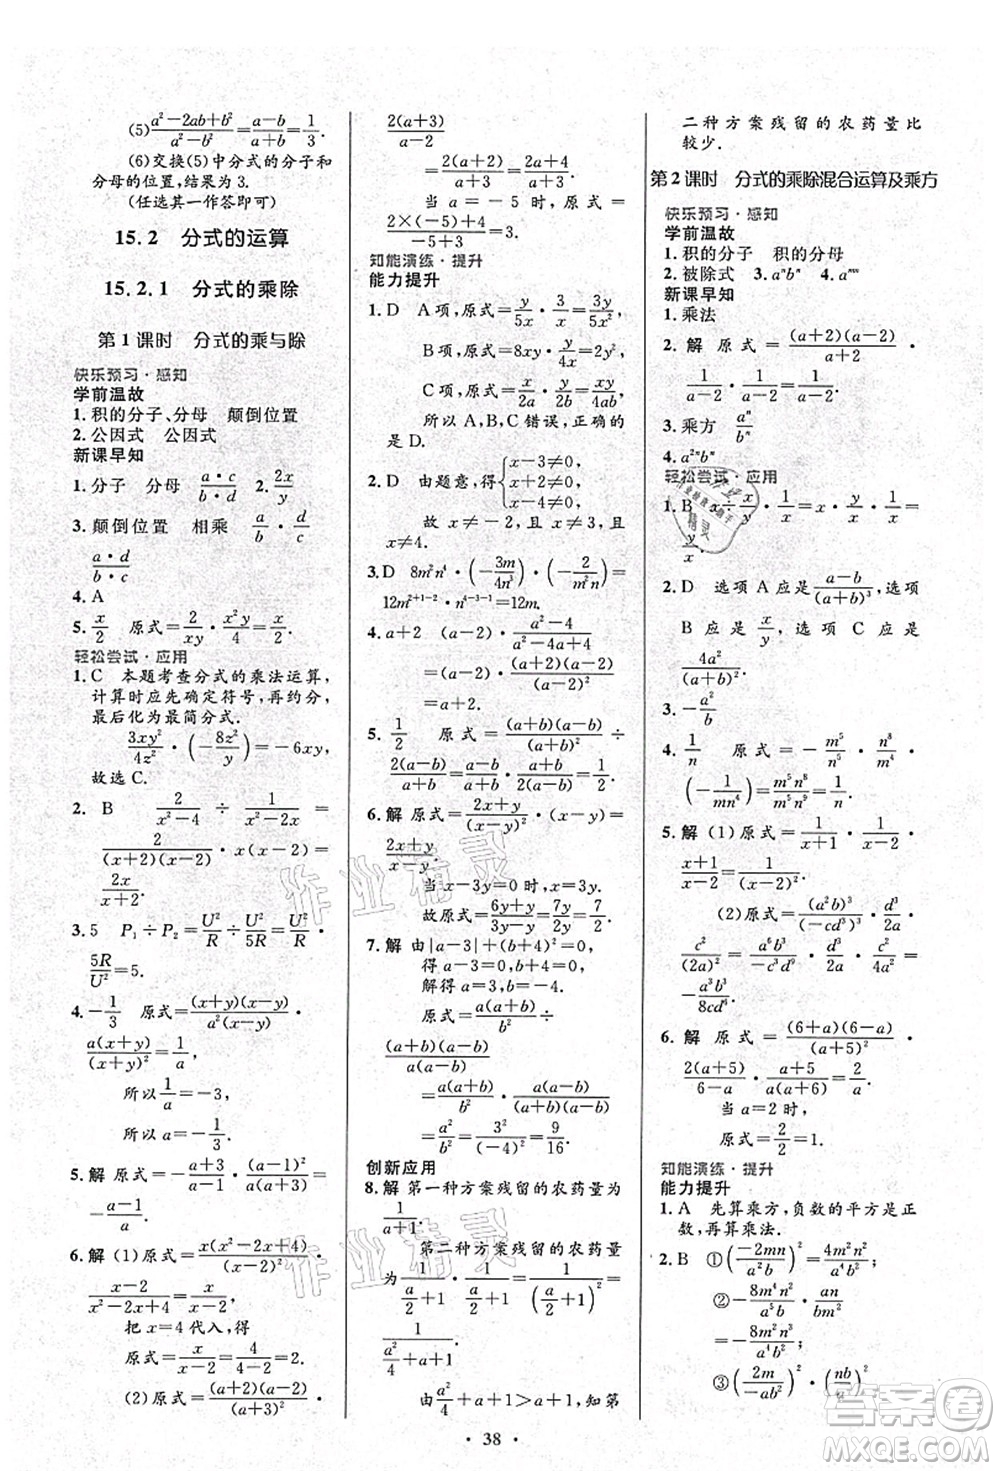 (5) \frac{a²-2ab+b²}{a²-b²}=\frac{a-b}{a+b}=\frac{1}{3}.
(6)交换(5)中分式的分子和
分母的位置,结果为3.
(任选其一作答即可)
15.2 分式的运算
15.2.1 分式的乘除
第1课时 分式的乘与除
快乐预习·感知
学前温故
1.积的分子、分母 颠倒位置
2.公因式 公因式
新课早知
1.分子 分母 \frac{a·c}{b·d} 2.\frac{2x}{y}
3.颠倒位置 相乘 \frac{a}{b}·\frac{d}{c}
\frac{a·d}{b·c}
4.A
5.\frac{x}{2} 原式=\frac{2}{xy}·\frac{x²y}{4}=\frac{x}{2}.
轻松尝试·应用
1.C 本题考查分式的乘法运算,
计算时应先确定符号,再约分,
最后化为最简分式.
\frac{3xy²}{4z²}·(-\frac{8z²}{y})=-6xy,
故选C.
2.B \frac{2}{x²-4}÷\frac{1}{x²-2x}=
\frac{2}{(x+2)(x-2)}·x(x-2)=
\frac{2x}{x+2}.
3.5 P₁÷P₂=\frac{U²}{R}÷\frac{U²}{5R}=\frac{U²}{R}·
\frac{5R}{U²}=5.
4.-\frac{1}{3} 原式=\frac{(x+y)(x-y)}{a²(x-y)}·
\frac{a(x+y)}{(x+y)²}=\frac{1}{a},
所以\frac{1}{a}=-3,
所以a=-\frac{1}{3}.
5.解 原式=-\frac{a+1}{a}·\frac{(a-1)²}{(a+1)(a-1)}=
-\frac{a-1}{a}.
6.解 (1)原式=\frac{x(x²-2x+4)}{x+2}·
\frac{x-2}{x²-2x+4}÷
把x=4代入,得
原式=\frac{x}{x-2}=\frac{4}{4-2}=2.
(2)原式=\frac{(a+2)(a-2)}{a(a+3)}·
\frac{2(a+3)}{a-2}
=\frac{2(a+2)}{a}=\frac{2(a+2)}{a}.
当a=-5时,原式=
\frac{2×(-5+2)}{-5}
知能演练·提升
能力提升
1.D A项,原式=\frac{y}{5x}·\frac{x}{3}
B项,原式=8xy·\frac{y}{4x}=2y²,
C项,原式=\frac{x}{2a}·\frac{y}{2b}=\frac{xy}{4ab},
所以A,B,C错误,正确的
是D.
2.D 由题意,得{x-3≠0, x-4≠0,
故x≠-2,且x≠3,且
x≠4.
3.D 8m²n²·(-\frac{3m}{4n³})·(-\frac{2}{m²n})=
12m²⁺¹⁻²·n²⁻³⁻¹
4.a+2 (a-2)·\frac{a²-4}{a²-4a+4}=
(a-2)·\frac{(a+2)(a-2)}{(a-2)²}
=a+2.
5.\frac{1}{2} 原式=\frac{(a+b)(a-b)}{(a+b)²}÷
\frac{2(a-b)}{a+b}=\frac{a-b}{a+b}·\frac{a+b}{2(a-b)}=\frac{1}{2}.
6.解 原式=\frac{2x+y}{(x-y)²}·(x-y)=
\frac{2x+y}{x-y}.
当x-3y=0时,x=3y.
故原式=\frac{6y+y}{3y-y}=\frac{7y}{2y}=\frac{7}{2}.
7.解 由|a-3|+(b+4)²=0,
得a-3=0,b+4=0,
解得a=3,b=-4.
原式=\frac{a(a+b)}{b²}÷
\frac{(a+b)(a-b)}{a(a-b)}
=\frac{a(a+b)}{b²}·\frac{a(a-b)}{(a+b)(a-b)}
=\frac{a²}{b²}=\frac{3²}{(-4)²}=\frac{9}{16}.
创新应用
8.解 第一种方案残留的农药量为
\frac{1}{a+1}.
第二种方案残留的农药量
为\frac{1}{\frac{a}{2}+1}·\frac{1}{\frac{a}{2}+1}=\frac{1}{(\frac{a}{2}+1)²}=
\frac{1}{\frac{a²}{4}+a+1}
由\frac{a²}{4}+a+1>a+1,知第
二种方案残留的农药量比
较少.
第2课时 分式的乘除混合运算及乘方
快乐预习·感知
学前温故
1.积的分子 积的分母
2.被除式 3.aⁿbⁿ 4.aᵐⁿ
新课早知
1.乘法
2.解 原式=\frac{(a+2)(a-2)}{a+2}·
\frac{1}{a-2}·\frac{1}{a-2}=\frac{1}{a-2}.
3.乘方 \frac{aⁿ}{bⁿ}
4.a²ⁿbⁿ
轻松尝试·应用
2.D 选项A应是\frac{a-b}{(a+b)³},选项
B应是\frac{x}{y},选项C应是
\frac{4a²}{(a-b)²}.
3.-\frac{a²}{b}
4.\frac{1}{n} 原式=-\frac{m⁵}{n⁵}·\frac{n⁸}{m⁴}
·(-\frac{1}{mn⁴})=\frac{m⁵n⁸}{m⁵n⁹}=\frac{1}{n}.
5.解 (1)原式=\frac{1}{x+1}·
\frac{x+1}{x-1}·\frac{1}{x-1}=\frac{1}{(x-1)²}.
(2)原式=\frac{(a²b)³}{(-cd³)³}·\frac{d³}{2a}·
\frac{c²}{(2a)²}=\frac{a⁶b³}{-c³d⁹}·\frac{d³}{2a}·\frac{c²}{4a²}=
-\frac{a³b³}{8cd⁶}.
6.解 原式=\frac{(6+a)(6-a)}{(a+5)²}·
\frac{2(a+5)}{6-a}·\frac{a+5}{a(a+6)}=\frac{2}{a}.
当a=2时,
原式=\frac{2}{2}=1.
知能演练·提升
能力提升
1.A 先算乘方,负数的平方是正
数,再算乘法.
2.B ①(\frac{-2mn}{a²b})²=\frac{4m²n²}{a⁴b²};
②-\frac{8m²n²}{a⁵b}·\frac{an}{bm²}
=-\frac{8n³}{a⁴b²};
③(\frac{2m}{-ab²})²·(\frac{nb}{a})²
·38·
作业精灵
作业精灵
答案圈
MXQE.COM